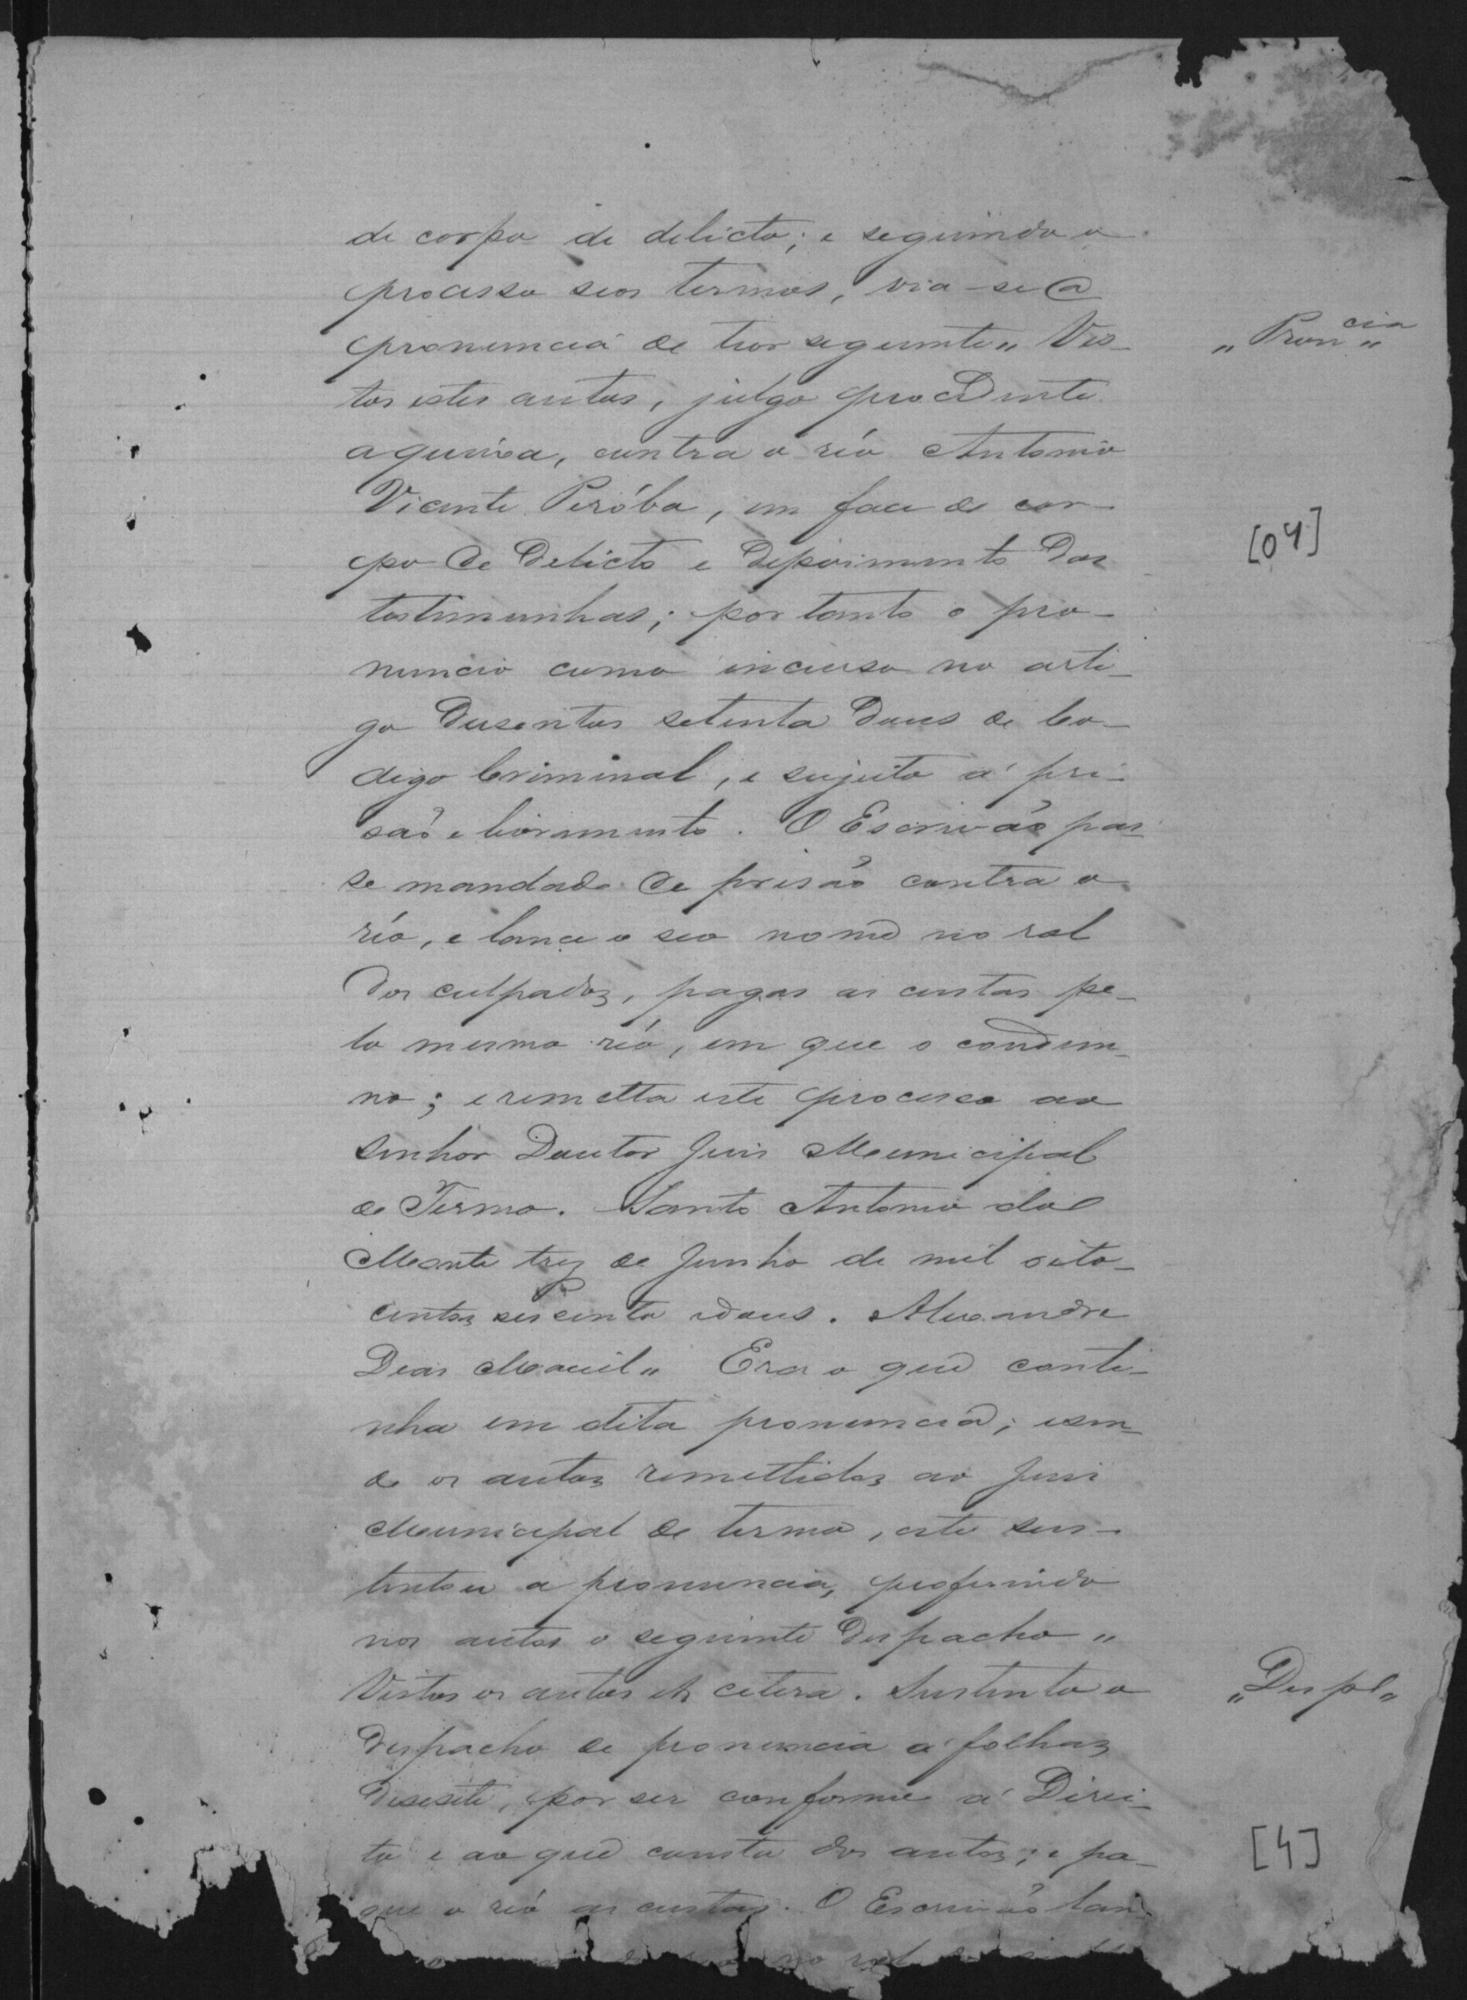 de corpo de delicto; e seguindo o
processo seos termos, via-se a
pronuncia de teor seguinte „ Vis-
„ Pron cia „
tos estes autos, julgo procedente
a queixa, contra o réo Antonio
Vicente Peróba, em face de cor-
[04]
po de delicto e depoimento das
testimunhas; por tanto o pro-
nuncio como incurso no arti-
go dusentos setenta dous de Co-
digo Criminal, e sujeito á pri-
saõ e livramento. O Escrivaõ pas-
se mandado de prisaõ contra o
réo, e lance o seo nome no rol
dos culpados, pagas as custas pe-
lo mesmo réo, em que o condem-
no; e remetta este processo ao
Senhor Doutor Juis Municipal
de Termo. Santo Antonio do
Monte trez de Junho de mil oito-
centos sescenta e dous. Alexandre
Dias Maciel „ Era o que conti-
nha em dita pronuncia; e sen-
do os autos remettidos ao Juis
Municipal de termo, este sus-
tentou a pronuncia, proferindo
nos autos o seguinte despacho „
Vistos os autos et cetera. Sustento o
„ Desp.o „
despacho de pronuncia a folhas
desesete, por ser conforme a Direi-
to e ao que consta dos autos; e pa-
[4]
gue o réo as custas. O Escrivaõ lan-
no rol